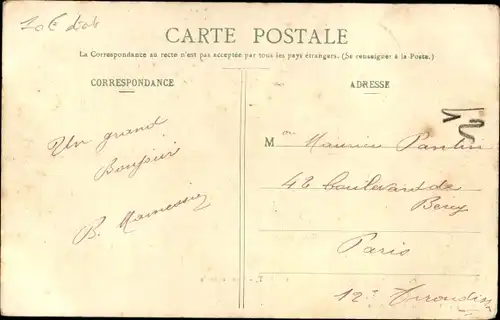 CARTE POSTALE
La Correspondance au recto n'est pas acceptée par tous les pays étrangers. (Se renseigner à la Poste.)
CORRESPONDANCE
ADRESSE
Un grand
Bonjour
B.
M Maurice Pantin
42 boulevard de
Bercy
Paris
12e